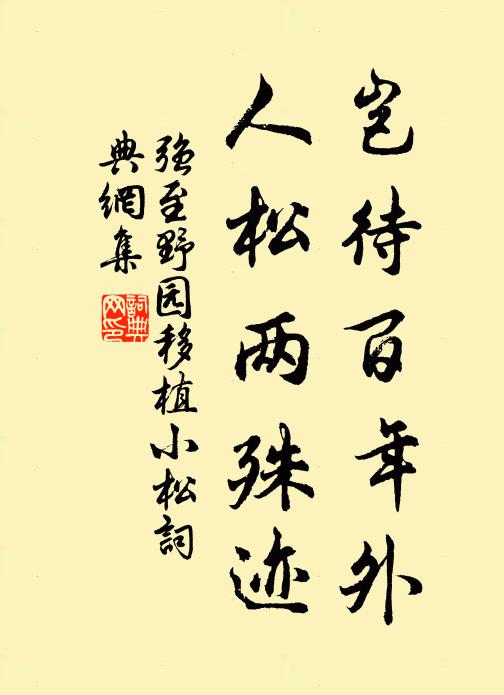 岂待百年外
人松两殊迹
强至野园移植小松詞
典網集
詞典
网印